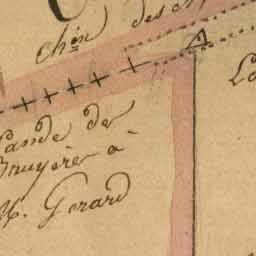 chin des
La
Lande de
Bruyère a
M. Gerard